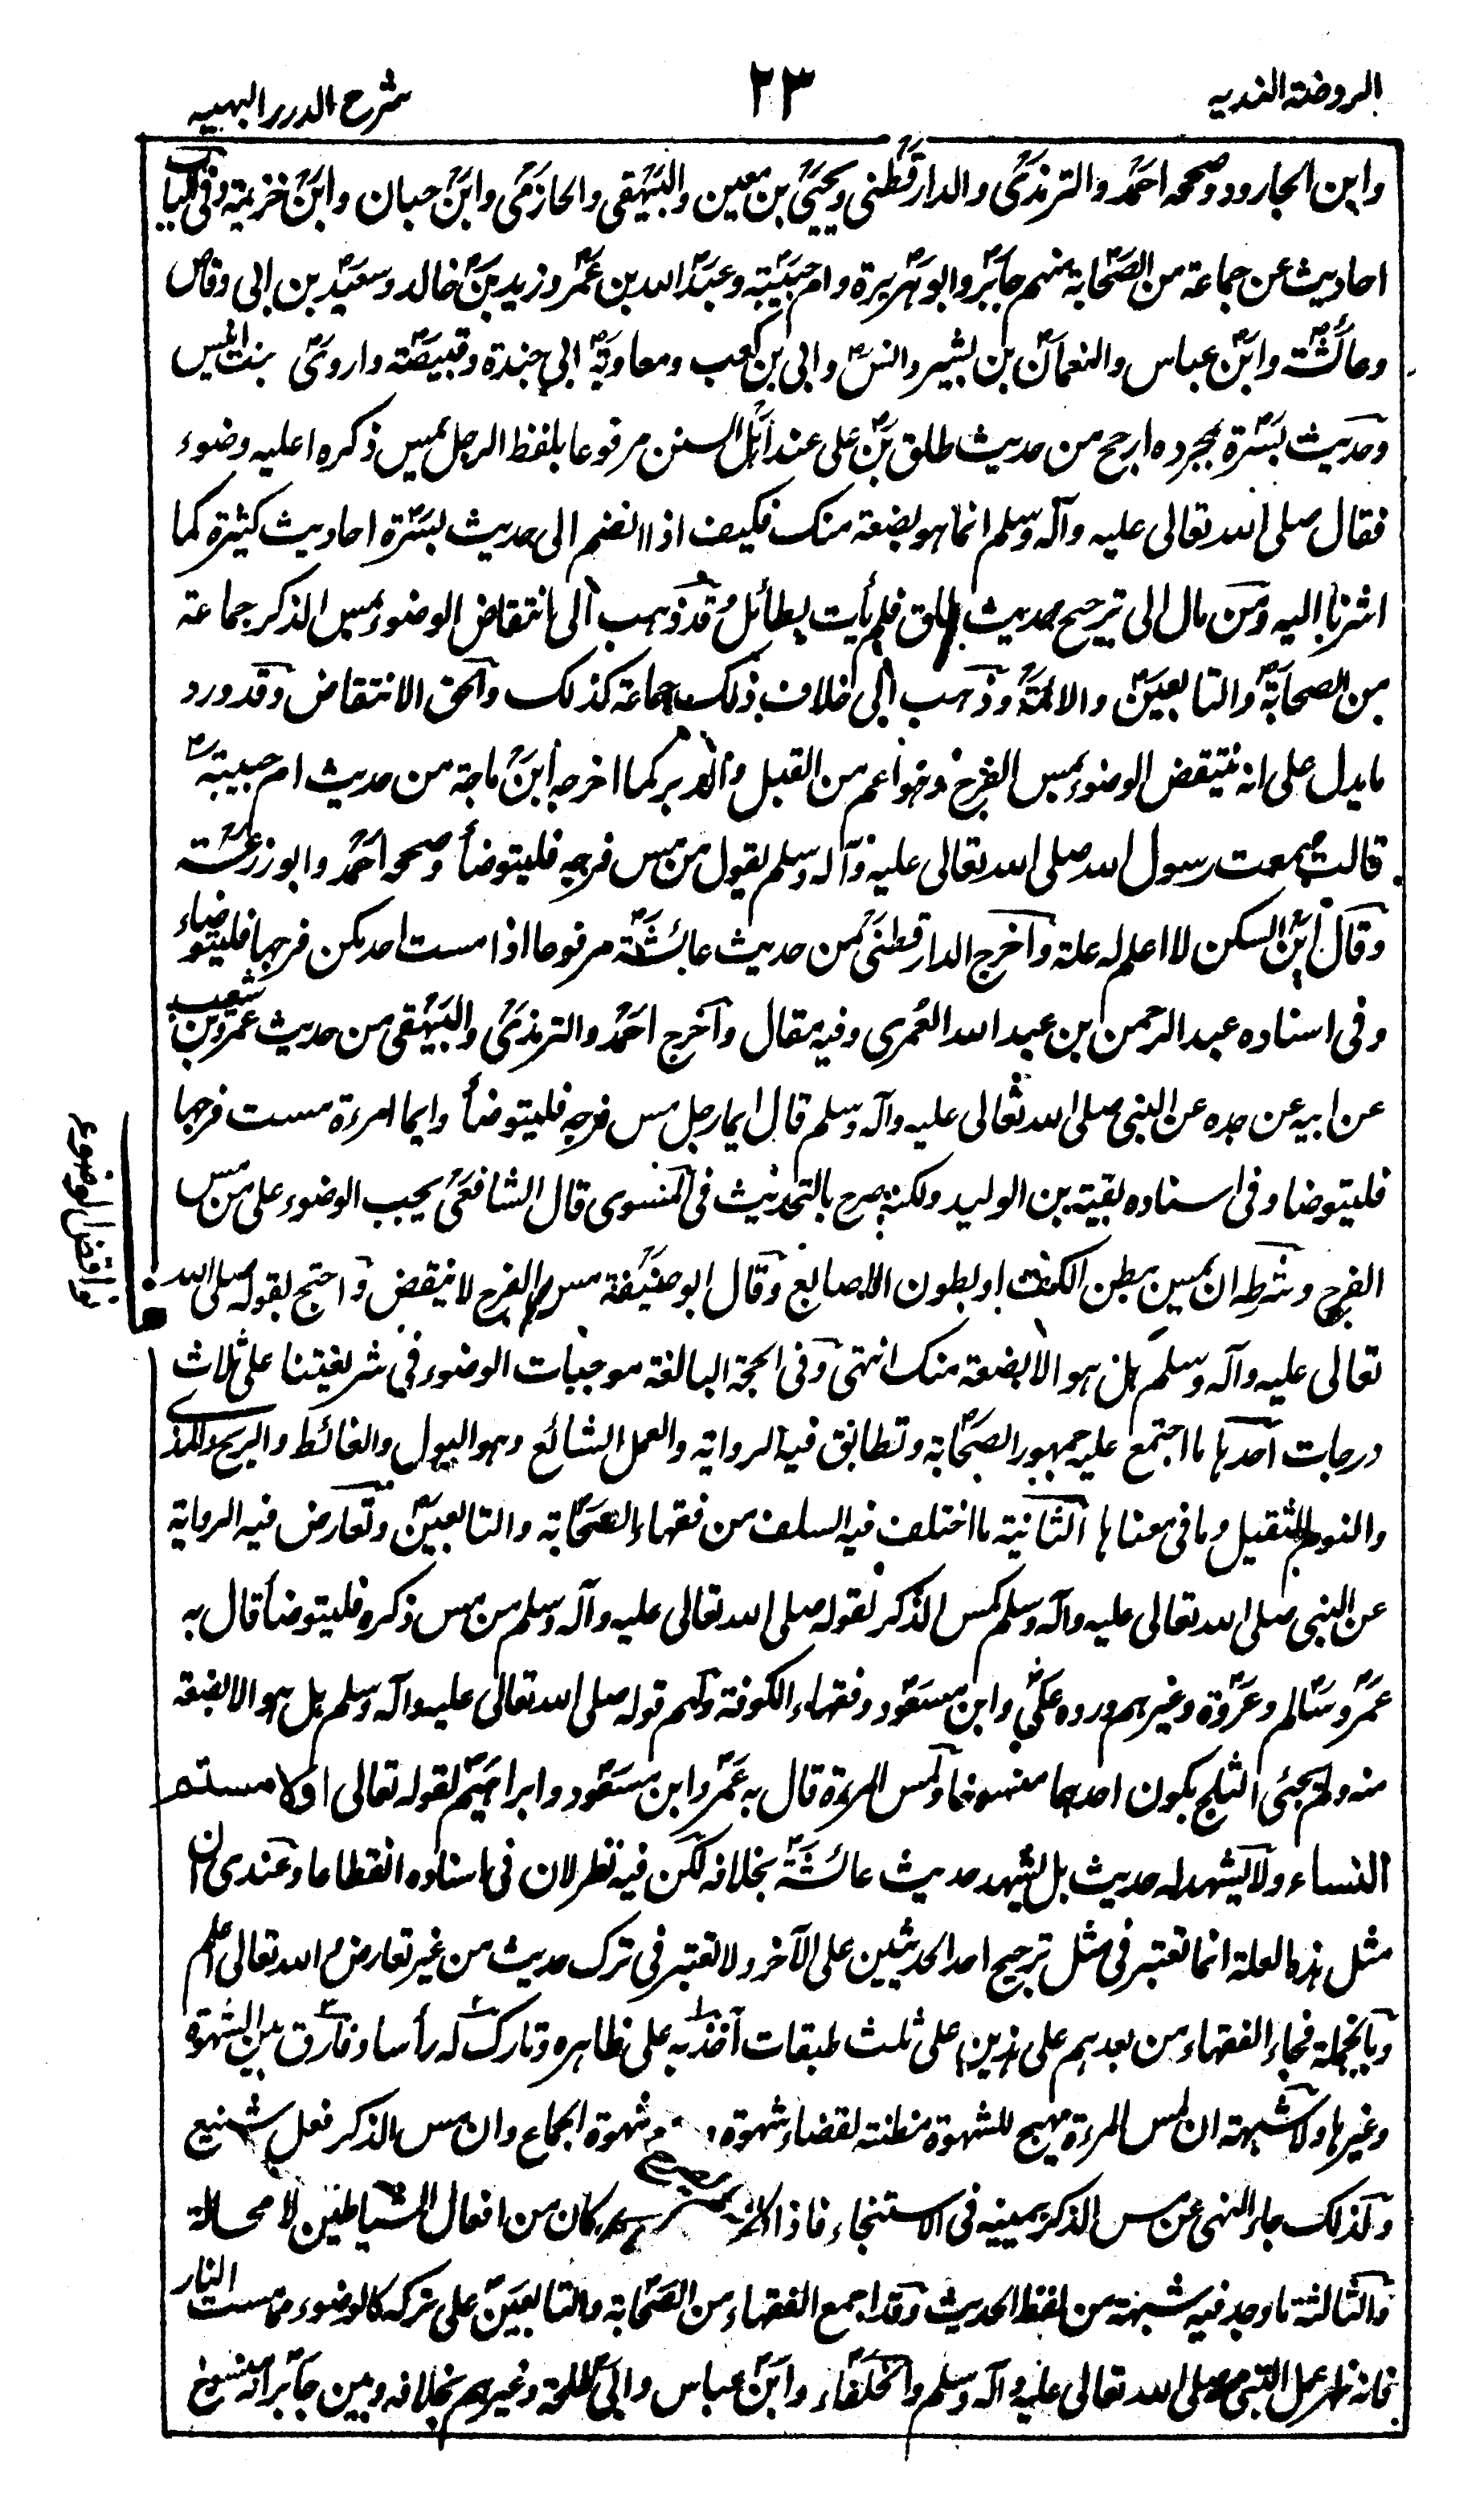 الروضة الندية
٢٣
شرح الدرر البهية
وابن الجارود وصححه احمد والترمذي والدارقطني ويحيى بن معين والبيهقي والحازمي وابن حبان وابن خزيمة وفي الباب
احاديث عن جماعة من الصحابة منهم جابر وابو هريرة وام حبيبة وعبد الله بن عمر وزيد بن خالد وسعيد بن ابي وقاص
وعائشة وابن عباس والنعمان بن بشير وانس وابي بن كعب ومعاوية ابي جندة وقبيصة واروى بنت انيس
وحديث بسرة بمجرده ارجح من حديث طلق بن علي عند اهل السنن مرفوعا بلفظ الرجل يمس ذكره اعليه وضوء
فقال صلى الله تعالى عليه وآله وسلم انما هو بضعة منك فكيف اذا انضم الى حديث بسرة احاديث كثيرة كما
اشرنا اليه ومن مال الى ترجيح حديث طلق فلم يأت بطائل وقد ذهب الى انتقاض الوضوء بمس الذكر جماعة
من الصحابة والتابعين والائمة وذهب الى خلاف ذلك جماعة كذلك والحق الانتقاض وقد ورد
ما يدل على انه ينتقض الوضوء بمس الفرج وهو اعم من القبل والدبر كما اخرجه ابن ماجة من حديث ام حبيبة
قالت سمعت رسول الله صلى الله تعالى عليه وآله وسلم يقول من مس فرجه فليتوضأ وصححه احمد وابو زرعة
وقال ابن السكن لا اعلم له علة واخرج الدارقطني من حديث عائشة مرفوعا اذا مست احدكن فرجها فليتوضاء
وفي اسناده عبد الرحمن بن عبد الله العمري وفيه مقال واخرج احمد والترمذي والبيهقي من حديث عمرو بن شعيب
عن ابيه عن جده عن النبي صلى الله تعالى عليه وآله وسلم قال ايما رجل مس فرجه فليتوضأ وايما امرءة مست فرجها
فليتوضا وفي اسناده بقية بن الوليد ولكنه صرح بالتحديث في المسوى قال الشافعي يجب الوضوء على من مس
الفرج وشرطه ان يمس ببطن الكف او بطون الاصابع وقال ابو حنيفة مس الفرج لا ينقض واحتج بقوله صلى الله
نواقض الوضوء
تعالى عليه وآله وسلم هل هو الا بضعة منك انتهى وفي الحجة البالغة موجبات الوضوء في شريعتنا على ثلاث
درجات احدها ما اجتمع عليه جمهور الصحابة وتطابق فيه الرواية والعمل الشائع وهو البول والغائط والريح والمذي
والنوم الثقيل وما في معناها الثانية ما اختلف فيه السلف من فقهاء الصحابة والتابعين وتعارض فيه الرواية
عن النبي صلى الله تعالى عليه وآله وسلم كمس الذكر لقوله صلى الله تعالى عليه وآله وسلم من مس ذكره فليتوضأ قال به
عمر وسالم وعروة وغيرهم ورده علي وابن مسعود وفقهاء الكوفة ولهم قوله صلى الله تعالى عليه وآله وسلم هل هو الا بضعة
منه ولم يجئ الثلج بكون احدهما منسوخا ولمس المرءة قال به عمر وابن مسعود وابراهيم لقوله تعالى اولامستم
النساء ولا يشهد له حديث بل يشهد حديث عائشة بخلافه لكن فيه نظر لان في اسناده انقطاعا وعندي ان
مثل هذه العلة انما تعتبر في مثل ترجيح احد الحديثين على الآخر ولا تعتبر في ترك حديث من غير تعارض والله تعالى اعلم
وبالجملة فجاء الفقهاء من بعدهم على هذين على ثلث طبقات آخذ به على ظاهره وتارك له رأسا وفارق بين الشهوة
وغيرها ولا شبهة ان لمس المرءة مهيج للشهوة مظنة لقضاء شهوة شهوة الجماع وان مس الذكر فعل شنيع
ولذلك جاء النهي عن مس الذكر بيمينه في الاستنجاء فاذا كان من افعال الشياطين لا محالة
والثالثة ما وجد فيه شبهة من لفظ الحديث وقد اجمع الفقهاء من الصحابة والتابعين على تركه كالوضوء مما مست النار
فانه ظهر عمل النبي صلى الله تعالى عليه وآله وسلم والخلفاء وابن عباس وابي طلحة وغيرهم بخلافه وبين جابر انه منسوخ